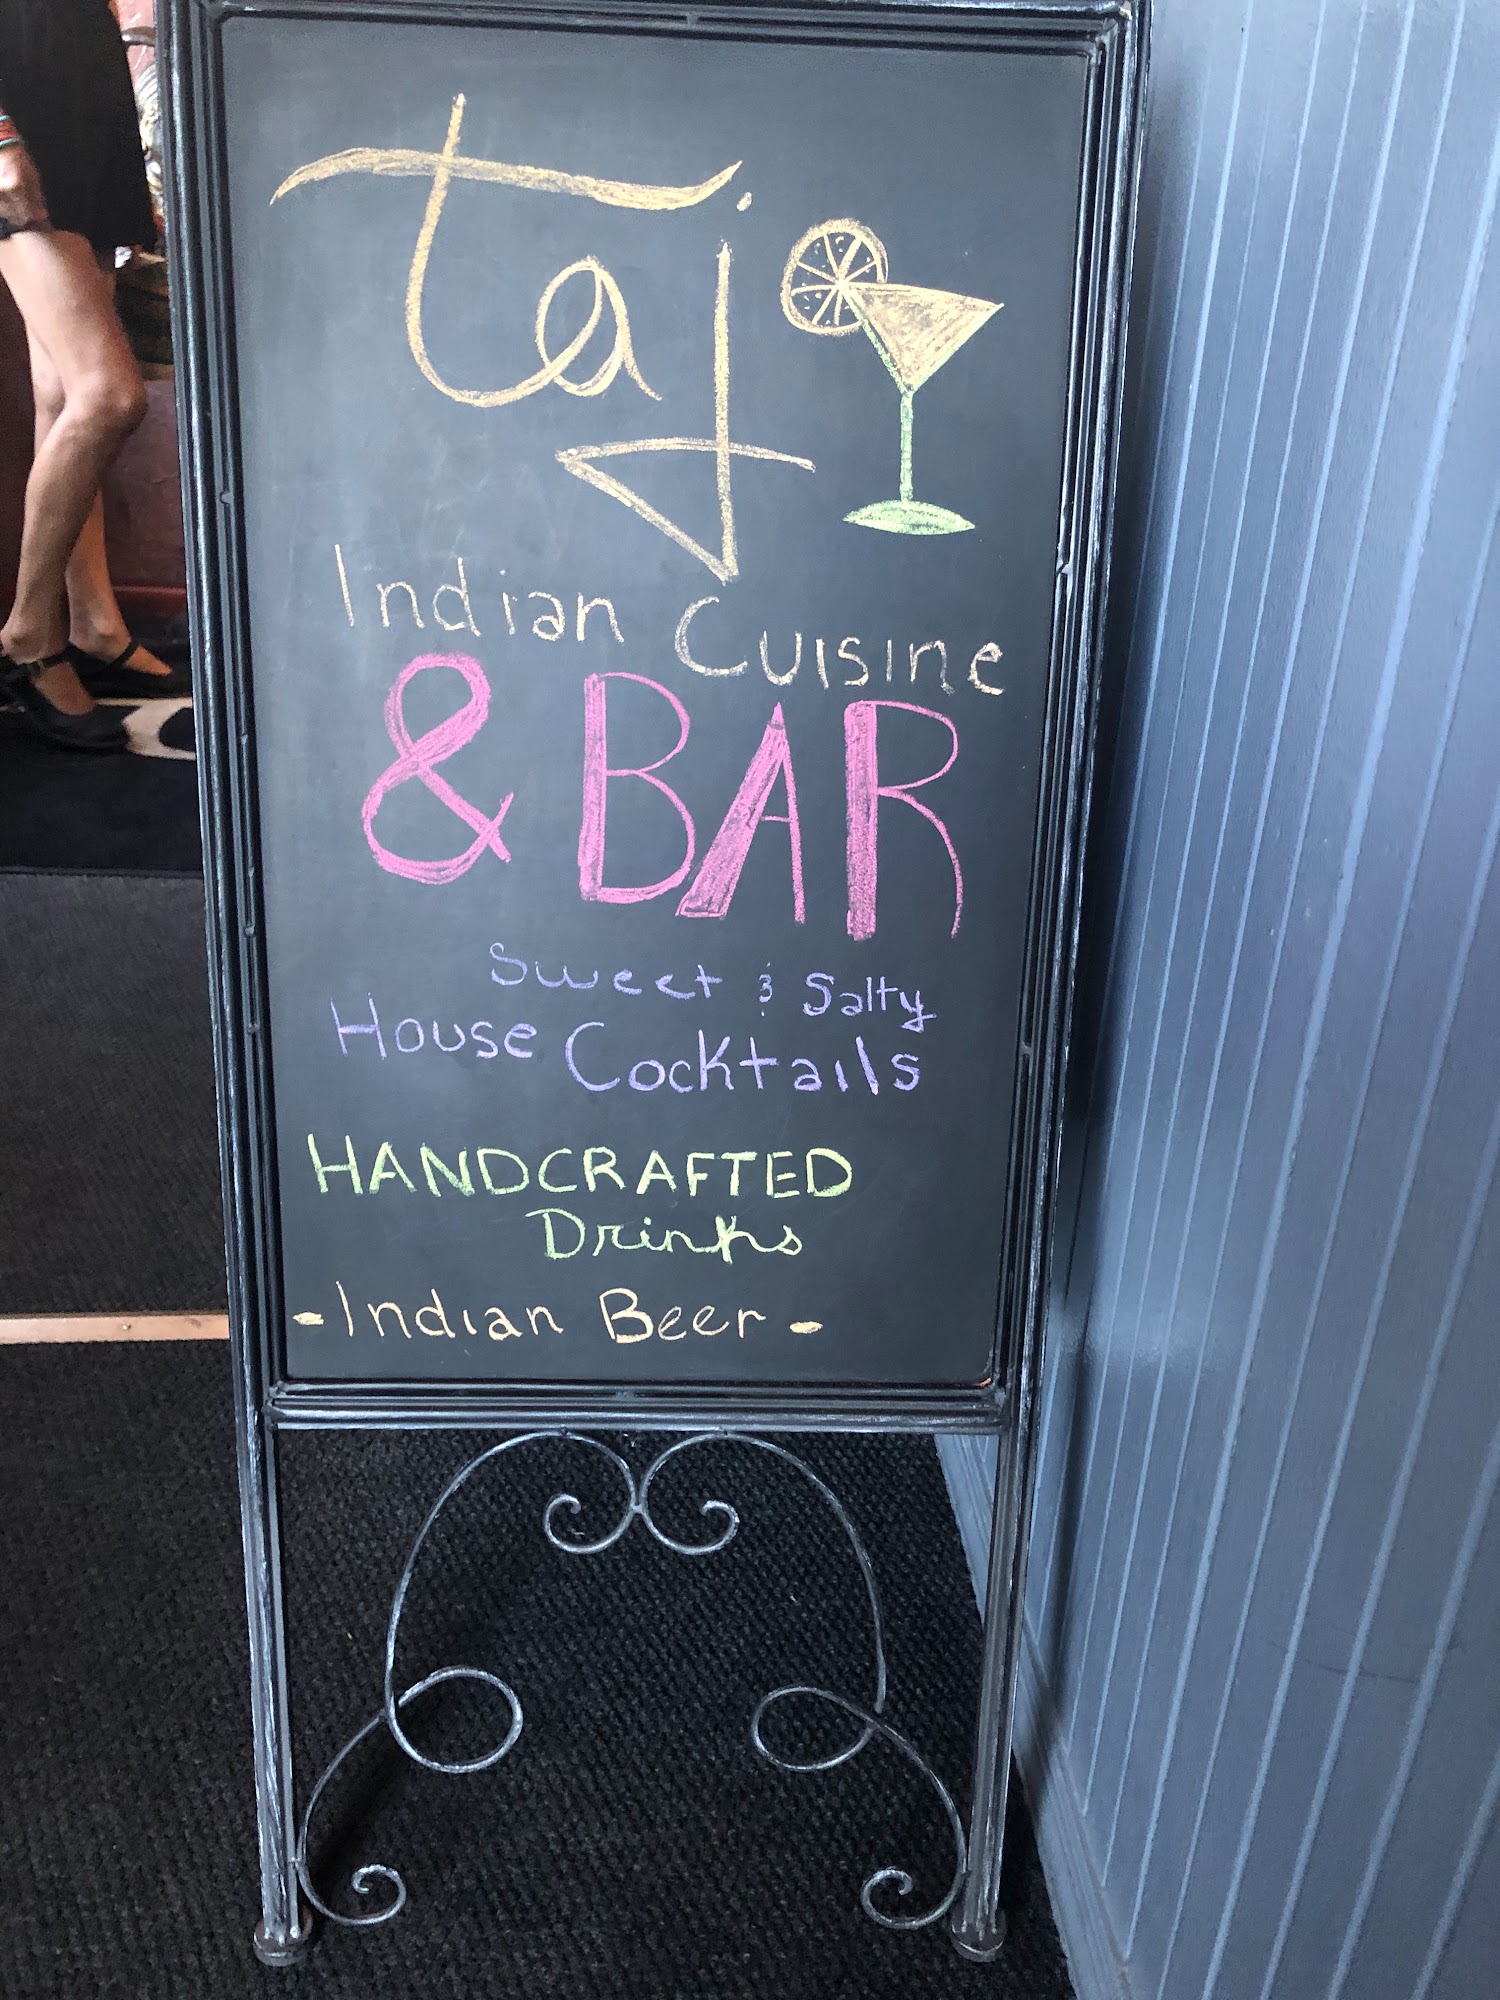 Taj
Indian Cuisine
& BAR
Sweet & Salty
House Cocktails
HANDCRAFTED
Drinks
- Indian Beer -